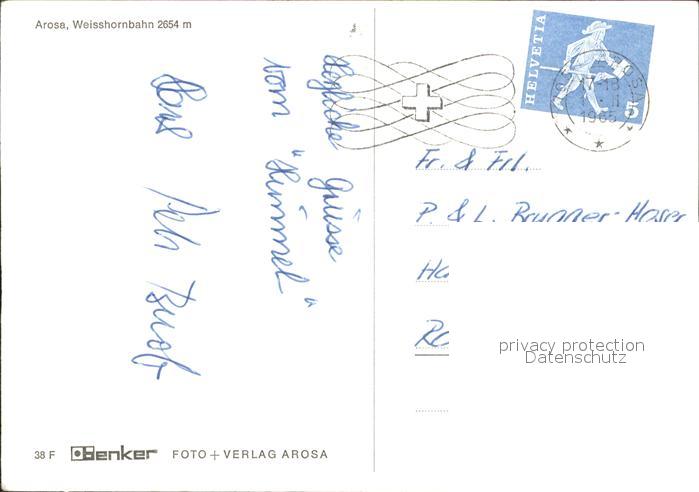 Arosa, Weisshornbahn 2654 m
Herzliche Grüsse
vom "Himmel"
HELVETIA
5
17-18
1965
Fr. & Frl.
P. & L. Brunner-Hoser
Ha
Ro
privacy protection
Datenschutz
38 F Benker FOTO + VERLAG AROSA